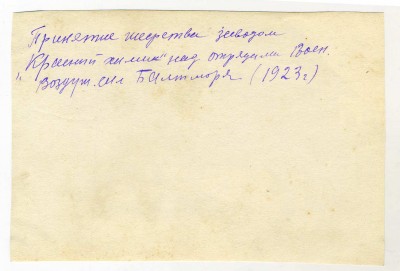 Принятие шефства заводом
„Красный химик" над отрядами Воен.
Воздуш. сил Балтморя (1923 г)